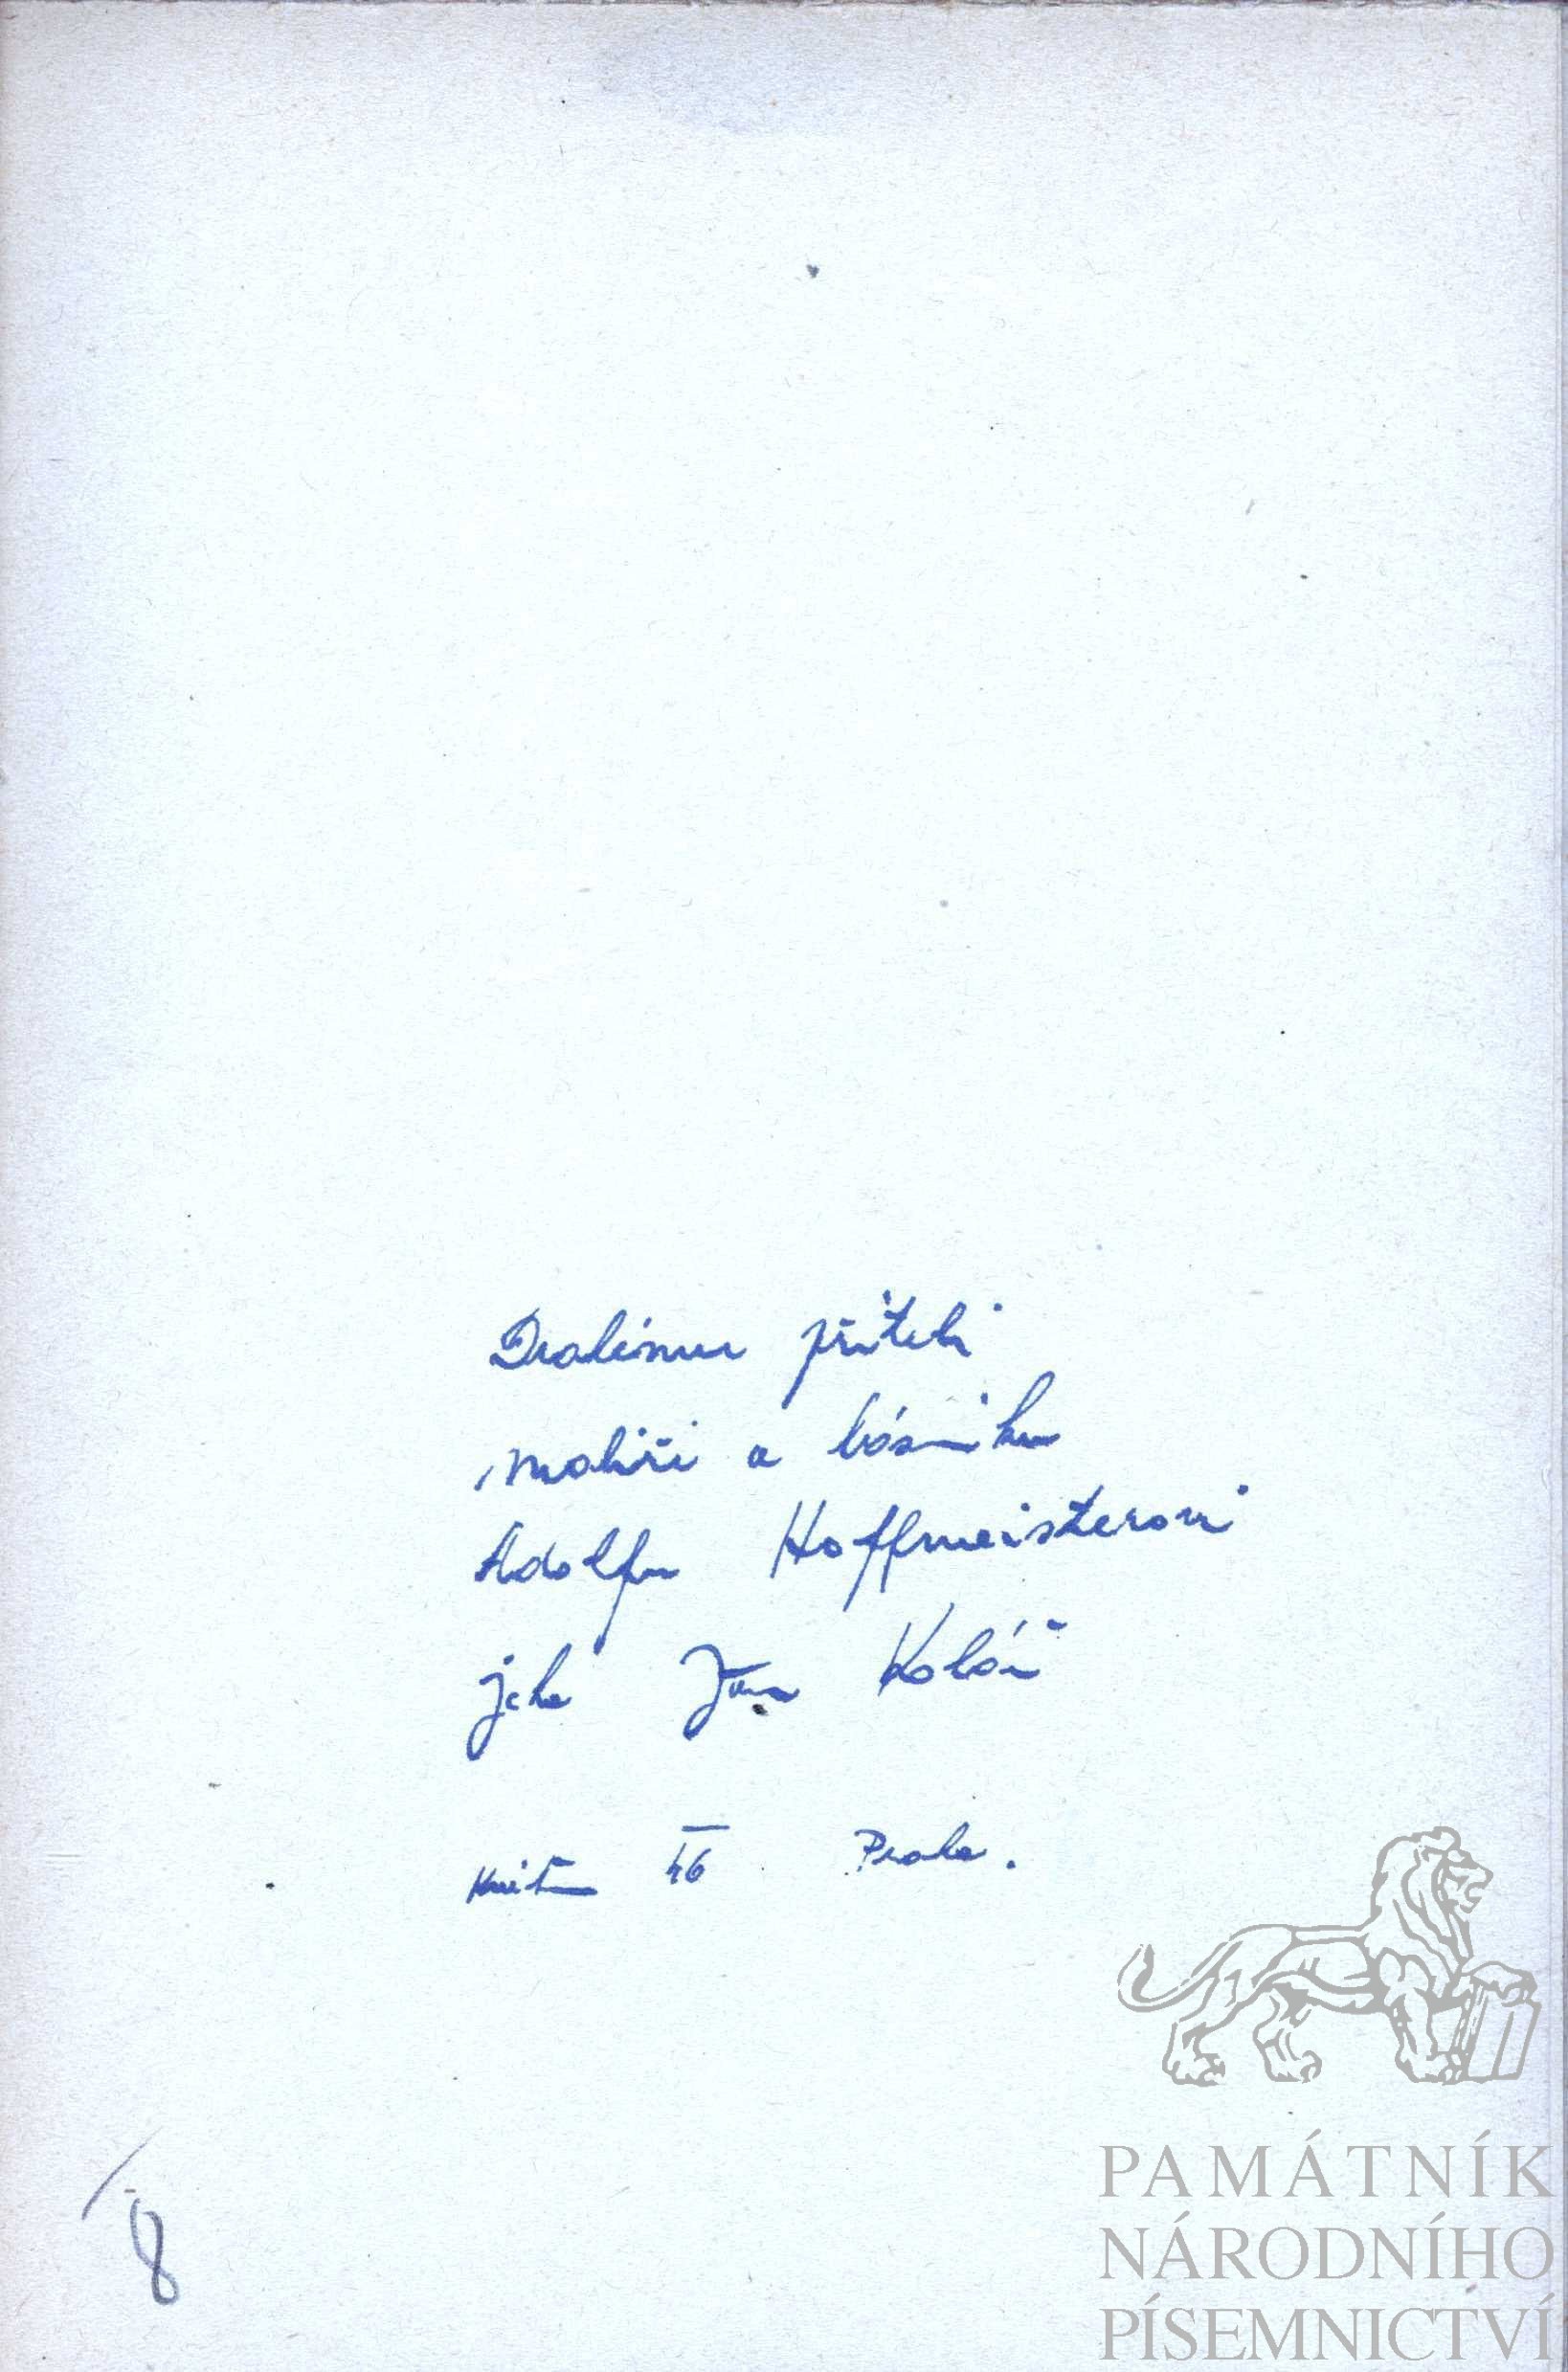 Drahému příteli
malíři a básníku
Adolfu Hoffmeisterovi
jeho Jan Kolář
Květen 46 Praha.
8
PAMÁTNÍK
NÁRODNÍHO
PÍSEMNICTVÍ